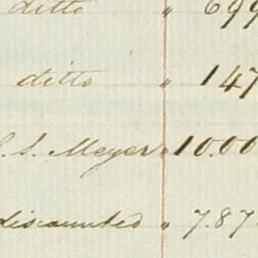 ditto " 699
ditto " 147
S. S. Meyer " 10.00
discounted " 7.87